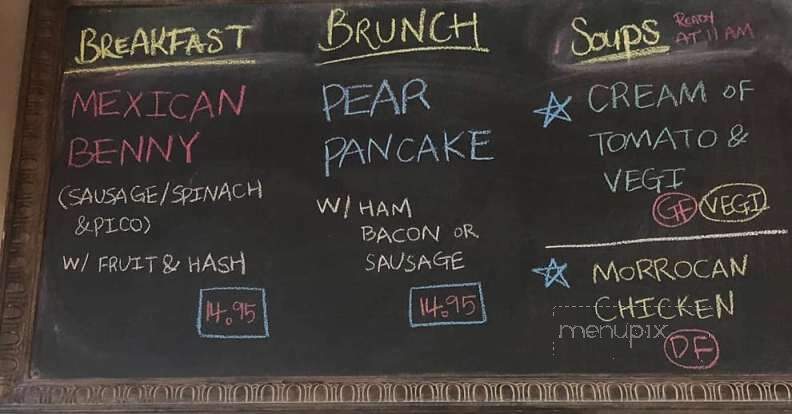 BREAKFAST
MEXICAN
BENNY
(SAUSAGE/SPINACH
& PICO)
W/ FRUIT & HASH
14.95
BRUNCH
PEAR
PANCAKE
W/ HAM
BACON OR
SAUSAGE
14.95
Soups READY
AT 11 AM
CREAM OF
TOMATO &
VEGI
GF VEGI
MORROCAN
CHICKEN
DF
menupix